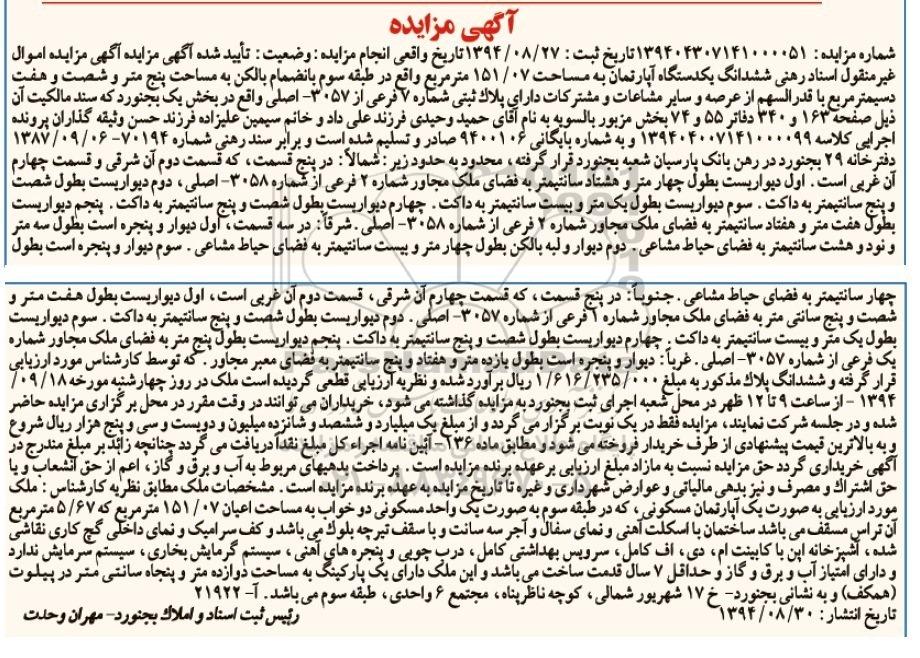 آگهی مزایده
شماره مزایده : ۱۳۹۴۰۴۳۰۷۱۴۱۰۰۰۰۵۱ تاریخ ثبت : ۱۳۹۴/۰۸/۲۷ تاریخ واقعی انجام مزایده : وضعیت : تأیید شده آگهی مزایده آگهی مزایده اموال
غیرمنقول اسناد رهنی ششدانگ یکدستگاه آپارتمان به مساحت ۱۵۱/۰۷ مترمربع واقع در طبقه سوم بانضمام بالکن به مساحت پنج متر و شصت و هفت
دسیمترمربع با قدرالسهم از عرصه و سایر مشاعات و مشترکات دارای پلاک ثبتی شماره ۷ فرعی از ۳۰۵۷- اصلی واقع در بخش یک بجنورد که سند مالکیت آن
ذیل صفحه ۱۶۳ و ۳۴۰ دفاتر ۵۵ و ۷۴ بخش مزبور بالسویه به نام آقای حمید وحیدی فرزند علی داد و خانم سیمین علیزاده فرزند حسن وثیقه گذاران پرونده
اجرایی کلاسه ۱۳۹۴۰۴۰۰۷۱۴۱۰۰۰۰۹۹ و به شماره بایگانی ۹۴۰۰۱۰۶ صادر و تسلیم شده است و برابر سند رهنی شماره ۷۰۱۹۴- ۱۳۸۷/۰۹/۰۶
دفترخانه ۲۹ بجنورد در رهن بانک پارسیان شعبه بجنورد قرار گرفته ، محدود به حدود زیر : شمالاً : در پنج قسمت ، که قسمت دوم آن شرقی و قسمت چهارم
آن غربی است . اول دیواریست بطول چهار متر و هشتاد سانتیمتر به فضای ملک مجاور شماره ۲ فرعی از شماره ۳۰۵۸- اصلی ، دوم دیواریست بطول شصت
و پنج سانتیمتر به داکت . سوم دیواریست بطول یک متر و بیست سانتیمتر به داکت . چهارم دیواریست بطول شصت و پنج سانتیمتر به داکت . پنجم دیواریست
بطول هفت متر و هفتاد سانتیمتر به فضای ملک مجاور شماره ۲ فرعی از شماره ۳۰۵۸- اصلی . شرقاً : در سه قسمت ، اول دیوار و پنجره است بطول سه متر
و نود و هشت سانتیمتر به فضای حیاط مشاعی . دوم دیوار و لبه بالکن بطول چهار متر و بیست سانتیمتر به فضای حیاط مشاعی . سوم دیوار و پنجره است بطول
چهار سانتیمتر به فضای حیاط مشاعی . جنوباً : در پنج قسمت ، که قسمت چهارم آن شرقی ، قسمت دوم آن غربی است ، اول دیواریست بطول هفت متر و
شصت و پنج سانتی متر به فضای ملک مجاور شماره ۱ فرعی از شماره ۳۰۵۷- اصلی . دوم دیواریست بطول شصت و پنج سانتیمتر به داکت . سوم دیواریست
بطول یک متر و بیست سانتیمتر به داکت . چهارم دیواریست بطول شصت و پنج سانتیمتر به داکت . پنجم دیواریست بطول پنج متر به فضای ملک مجاور شماره
یک فرعی از شماره ۳۰۵۷- اصلی . غرباً : دیوار و پنجره است بطول یازده متر و هفتاد و پنج سانتیمتر به فضای معبر مجاور . که توسط کارشناس مورد ارزیابی
قرار گرفته و ششدانگ پلاک مذکور به مبلغ ۱/۶۱۶/۲۳۵/۰۰۰ ریال برآورد شده و نظریه ارزیابی قطعی گردیده است ملک در روز چهارشنبه مورخه ۰۹/۱۸/
۱۳۹۴ - از ساعت ۹ تا ۱۲ ظهر در محل شعبه اجرای ثبت بجنورد به مزایده گذاشته می شود ، خریداران می توانند در وقت مقرر در محل برگزاری مزایده حاضر
شده و در جلسه شرکت نمایند ، مزایده فقط در یک نوبت برگزار می گردد و از مبلغ یک میلیارد و ششصد و شانزده میلیون و دویست و سی و پنج هزار ریال شروع
و به بالاترین قیمت پیشنهادی از طرف خریدار فروخته می شود و مطابق ماده ۱۳۶- آئین نامه اجراء کل مبلغ نقداً دریافت می گردد چنانچه زائد بر مبلغ مندرج در
آگهی خریداری گردد حق مزایده نسبت به مازاد مبلغ ارزیابی بر عهده برنده مزایده است . پرداخت بدهیهای مربوط به آب و برق و گاز ، اعم از حق انشعاب و یا
حق اشتراک و مصرف و نیز بدهی مالیاتی و عوارض شهرداری و غیره تا تاریخ مزایده به عهده برنده مزایده است . مشخصات ملک مطابق نظریه کارشناس : ملک
مورد ارزیابی به صورت یک آپارتمان مسکونی ، که در طبقه سوم به صورت یک واحد مسکونی دو خواب به مساحت اعیان ۱۵۱/۰۷ مترمربع که ۵/۶۷ مترمربع
آن تراس مسقف می باشد ساختمان با اسکلت آهنی و نمای سفال و آجر سه سانت و با سقف تیرچه بلوک می باشد و کف سرامیک و نمای داخلی گچ کاری نقاشی
شده ، آشپزخانه اپن با کابینت ام ، دی ، اف کامل ، سرویس بهداشتی کامل ، درب چوبی و پنجره های آهنی ، سیستم گرمایش بخاری ، سیستم سرمایش ندارد
و دارای امتیاز آب و برق و گاز و حداقل ۷ سال قدمت ساخت می باشد و این ملک دارای یک پارکینگ به مساحت دوازده متر و پنجاه سانتی متر در پیلوت
(همکف) و به نشانی بجنورد- خ ۱۷ شهریور شمالی ، کوچه ناظرپناه ، مجتمع ۶ واحدی ، طبقه سوم می باشد . آ- ۲۱۹۲۲
تاریخ انتشار : ۱۳۹۴/۰۸/۳۰
رئیس ثبت اسناد و املاک بجنورد- مهران وحدت